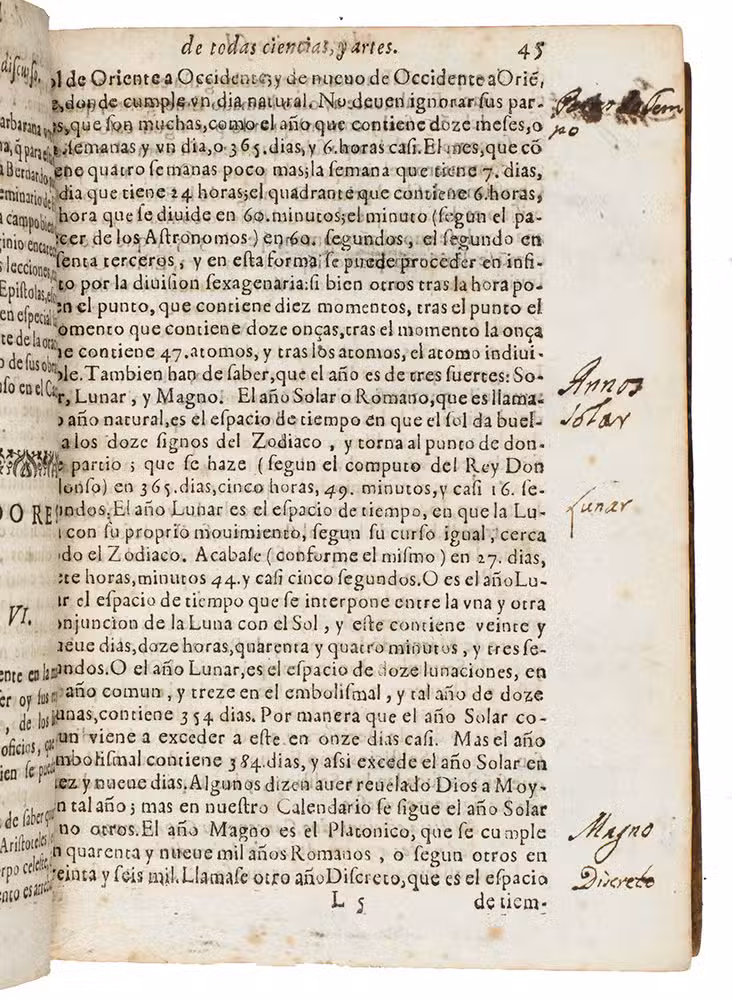 diſcurſo.
arbarana v
na, q̃ para el
Bernardo
eminario de
campo bien
ginio encare
s lecciones,
Epiſtolas, el
en eſpecial
te de la ora
o de ſus obr
nſo en el Ca
DO RE
VI.
ente en la
er oy ſus
, de los
oficios, que
ien ſe pue
de ſaber que
Ariſtoteles
rpo celeſte,
de todas ciencias, y artes. 45
ol de Oriente a Occidente; y de nueuo de Occidente a Oriẽ,
e, donde cumple vn dia natural. No deuen ignorar ſus par-
es, que ſon muchas, como el año que contiene doze meſes, o
ſemanas y vn dia, o 365. dias, y 6. horas caſi. El mes, que cõ
ene quatro ſemanas poco mas; la ſemana que tiene 7. dias,
dia que tiene 24 horas; el quadrante que contiene 6. horas,
hora que ſe diuide en 60. minutos; el minuto (ſegun el pa-
cer de los Aſtronomos) en 60. ſegundos, el ſegundo en
ſenta terceros, y en eſta forma ſe puede proceder en infi-
to por la diuiſion ſexagenaria: ſi bien otros tras la hora po-
en el punto, que contiene diez momentos, tras el punto el
omento que contiene doze onças, tras el momento la onça
ue contiene 47. atomos, y tras los atomos, el atomo indiui-
ble. Tambien han de ſaber, que el año es de tres ſuertes: So-
r, Lunar, y Magno. El año Solar o Romano, que es llama-
o año natural, es el eſpacio de tiempo en que el ſol da buel-
a los doze ſignos del Zodiaco, y torna al punto de don-
e partio; que ſe haze (ſegun el computo del Rey Don
lonſo) en 365. dias, cinco horas, 49. minutos, y caſi 16. ſe-
undos. El año Lunar es el eſpacio de tiempo, en que la Lu-
con ſu proprio mouimiento, ſegun ſu curſo igual, cerca
do el Zodiaco. Acabaſe (conforme el miſmo) en 27. dias,
ete horas, minutos 44. y caſi cinco ſegundos. O es el año Lu-
ar el eſpacio de tiempo que ſe interpone entre la vna y otra
onjuncion de la Luna con el Sol, y eſte contiene veinte y
ueue dias, doze horas, quarenta y quatro minutos, y tres ſe-
undos. O el año Lunar, es el eſpacio de doze lunaciones, en
año comun, y treze en el emboliſmal, y tal año de doze
unas, contiene 354 dias. Por manera que el año Solar co-
un viene a exceder a eſte en onze dias caſi. Mas el año
mboliſmal contiene 384. dias, y aſsi excede el año Solar en
ez y nueue dias. Algunos dizen auer reuelado Dios a Moy-
n tal año; mas en nueſtro Calendario ſe ſigue el año Solar
no otros. El año Magno es el Platonico, que ſe cumple
n quarenta y nueue mil años Romanos, o ſegun otros en
reinta y ſeis mil. Llamaſe otro año Diſcreto, que es el eſpacio
L 5 de tiem-
Annos
solar
Lunar
Magno
Discreto